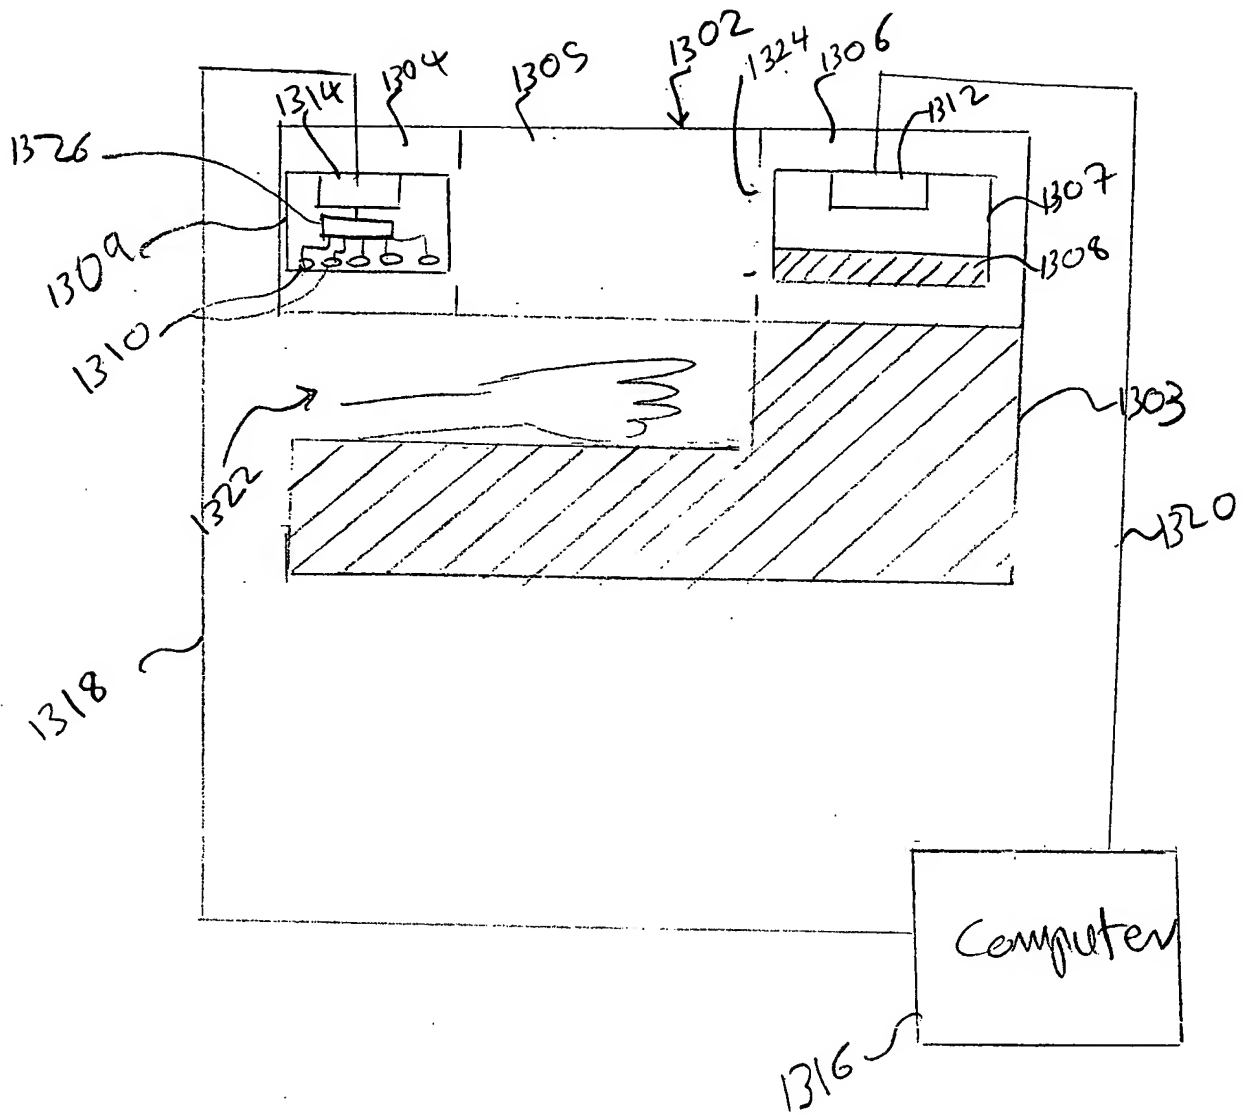 1302
1324
1306
1304
1305
1314
1312
1326
1307
1309
1308
1310
1303
1322
1320
1318
Computer
1316